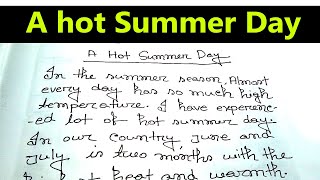 A hot Summer Day
A Hot Summer Day
In the summer season, Almost
every day has so much high
temperature. I have experienc-
-ed lot of hot summer day.
In our country, june and
july, is two months with the
heat and warmth.